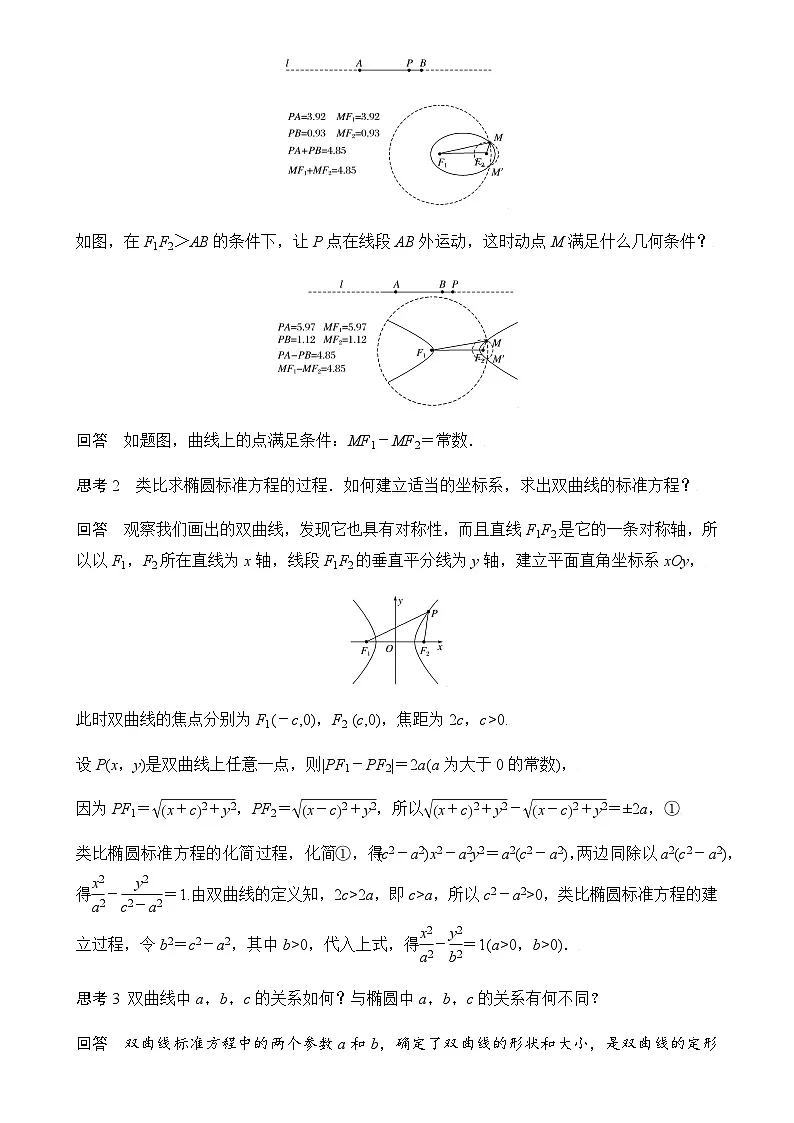 l A P B
PA=3.92 MF₁=3.92
PB=0.93 MF₂=0.93
PA+PB=4.85
MF₁+MF₂=4.85
M
F₁ F₂
M′
如图，在F₁F₂＞AB的条件下，让P点在线段AB外运动，这时动点M满足什么几何条件？
l A B P
PA=5.97 MF₁=5.97
PB=1.12 MF₂=1.12
PA−PB=4.85
MF₁−MF₂=4.85
M
F₁ F₂ M′
回答 如题图，曲线上的点满足条件：MF₁－MF₂＝常数．
思考2 类比求椭圆标准方程的过程．如何建立适当的坐标系，求出双曲线的标准方程？
回答 观察我们画出的双曲线，发现它也具有对称性，而且直线F₁F₂是它的一条对称轴，所
以以F₁，F₂所在直线为x轴，线段F₁F₂的垂直平分线为y轴，建立平面直角坐标系xOy，
y
P
F₁ O F₂ x
此时双曲线的焦点分别为F₁(－c,0)，F₂ (c,0)，焦距为2c，c>0.
设P(x，y)是双曲线上任意一点，则|PF₁－PF₂|＝2a(a为大于0的常数)，
因为PF₁＝√(x＋c)²＋y²，PF₂＝√(x－c)²＋y²，所以√(x＋c)²＋y²－√(x－c)²＋y²＝±2a，①
类比椭圆标准方程的化简过程，化简①，得(c²－a²)x²－a²y²＝a²(c²－a²)，两边同除以a²(c²－a²)，
得x²/a²－y²/(c²－a²)＝1.由双曲线的定义知，2c>2a，即c>a，所以c²－a²>0，类比椭圆标准方程的建
立过程，令b²＝c²－a²，其中b>0，代入上式，得x²/a²－y²/b²＝1(a>0，b>0)．
思考3 双曲线中a，b，c的关系如何？与椭圆中a，b，c的关系有何不同？
回答 双曲线标准方程中的两个参数a和b，确定了双曲线的形状和大小，是双曲线的定形